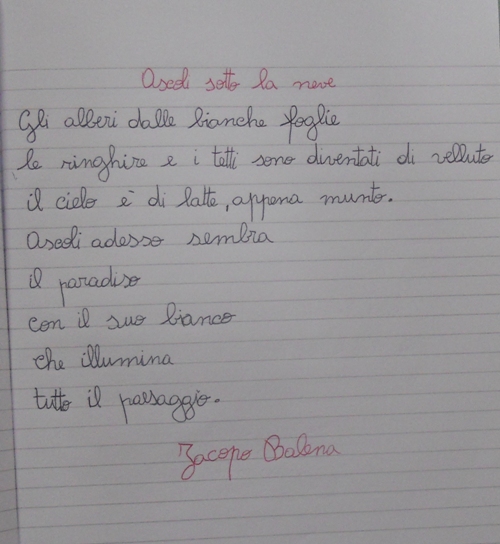 Ascoli sotto la neve
Gli alberi dalle bianche foglie
le ringhire e i tetti sono diventati di velluto
il cielo è di latte, appena munto.
Ascoli adesso sembra
il paradiso
con il suo bianco
che illumina
tutto il paesaggio.
Jacopo Balena